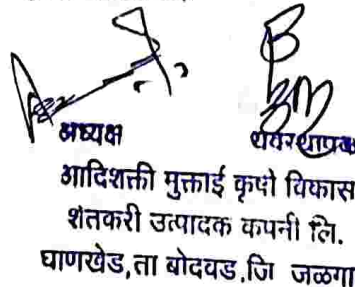 अध्यक्ष व्यवस्थापक
आदिशक्ती मुक्ताई कृषी विकास
शेतकरी उत्पादक कंपनी लि.
घाणखेड,ता बोदवड,जि जळगा